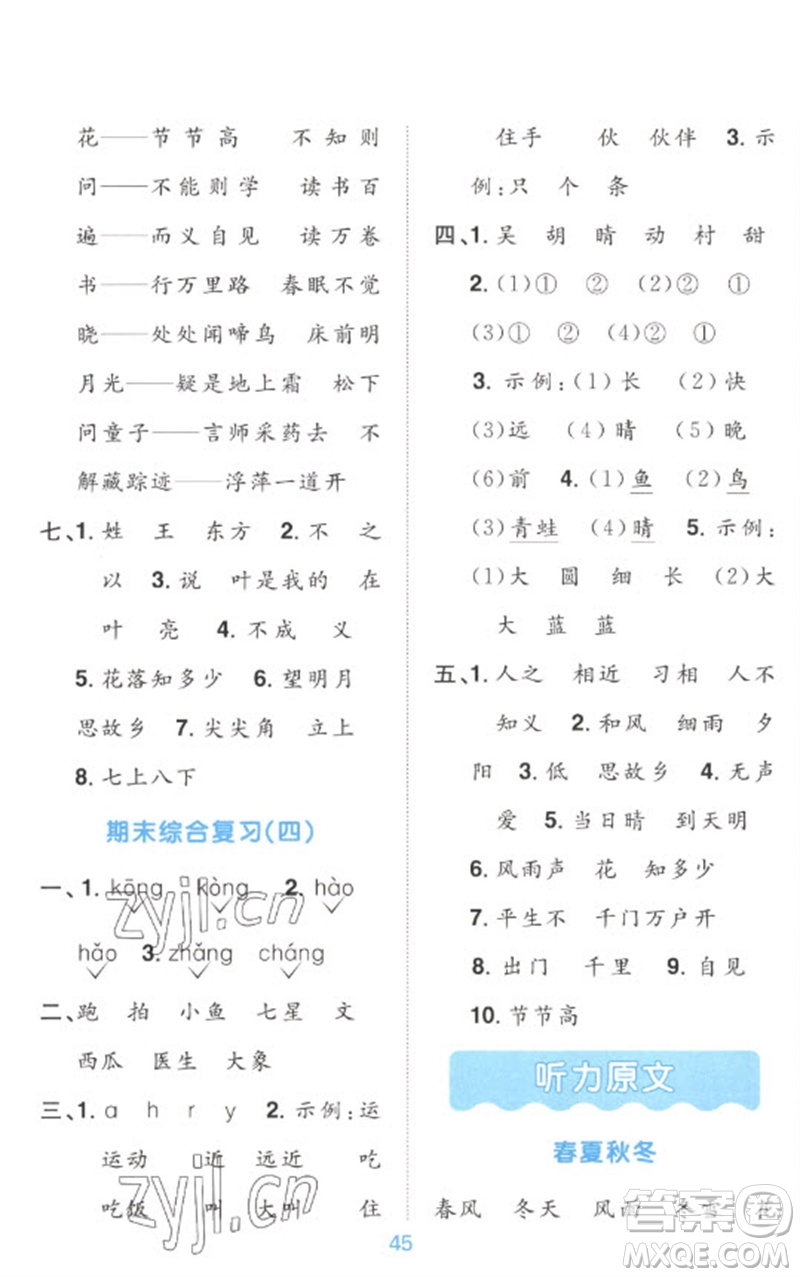 花——节节高 不知则
问——不能则学 读书百
遍——而义自见 读万卷
书——行万里路 春眠不觉
晓——处处闻啼鸟 床前明
月光——疑是地上霜 松下
问童子——言师采药去 不
解藏踪迹——浮萍一道开
七、1. 姓 王 东方 2. 不 之
以 3. 说 叶是我的 在
叶 亮 4. 不成 义
5. 花落知多少 6. 望明月
思故乡 7. 尖尖角 立上
8. 七上八下
期末综合复习(四)
一、1. kōng kòng 2. hào
hǎo 3. zhǎng cháng
二、跑 拍 小鱼 七星 文
西瓜 医生 大象
三、1. a h r y 2. 示例:运
运动 近 远近 吃
吃饭 叫 大叫 住
住手 伙 伙伴 3. 示
例:只 个 条
四、1. 吴 胡 晴 动 村 甜
2. (1)① ② (2)② ①
(3)① ② (4)② ①
3. 示例:(1)长 (2)快
(3)远 (4)晴 (5)晚
(6)前 4. (1)鱼 (2)鸟
(3)青蛙 (4)晴 5. 示例:
(1)大 圆 细 长 (2)大
大 蓝 蓝
五、1. 人之 相近 习相 人不
知义 2. 和风 细雨 夕
阳 3. 低 思故乡 4. 无声
爱 5. 当日晴 到天明
6. 风雨声 花 知多少
7. 平生不 千门万户开
8. 出门 千里 9. 自见
10. 节节高
听力原文
春夏秋冬
春风 冬天 风雨 冬雪 花
45
zyjl.cn
zyjl.cn
答案圈
MXQE.COM